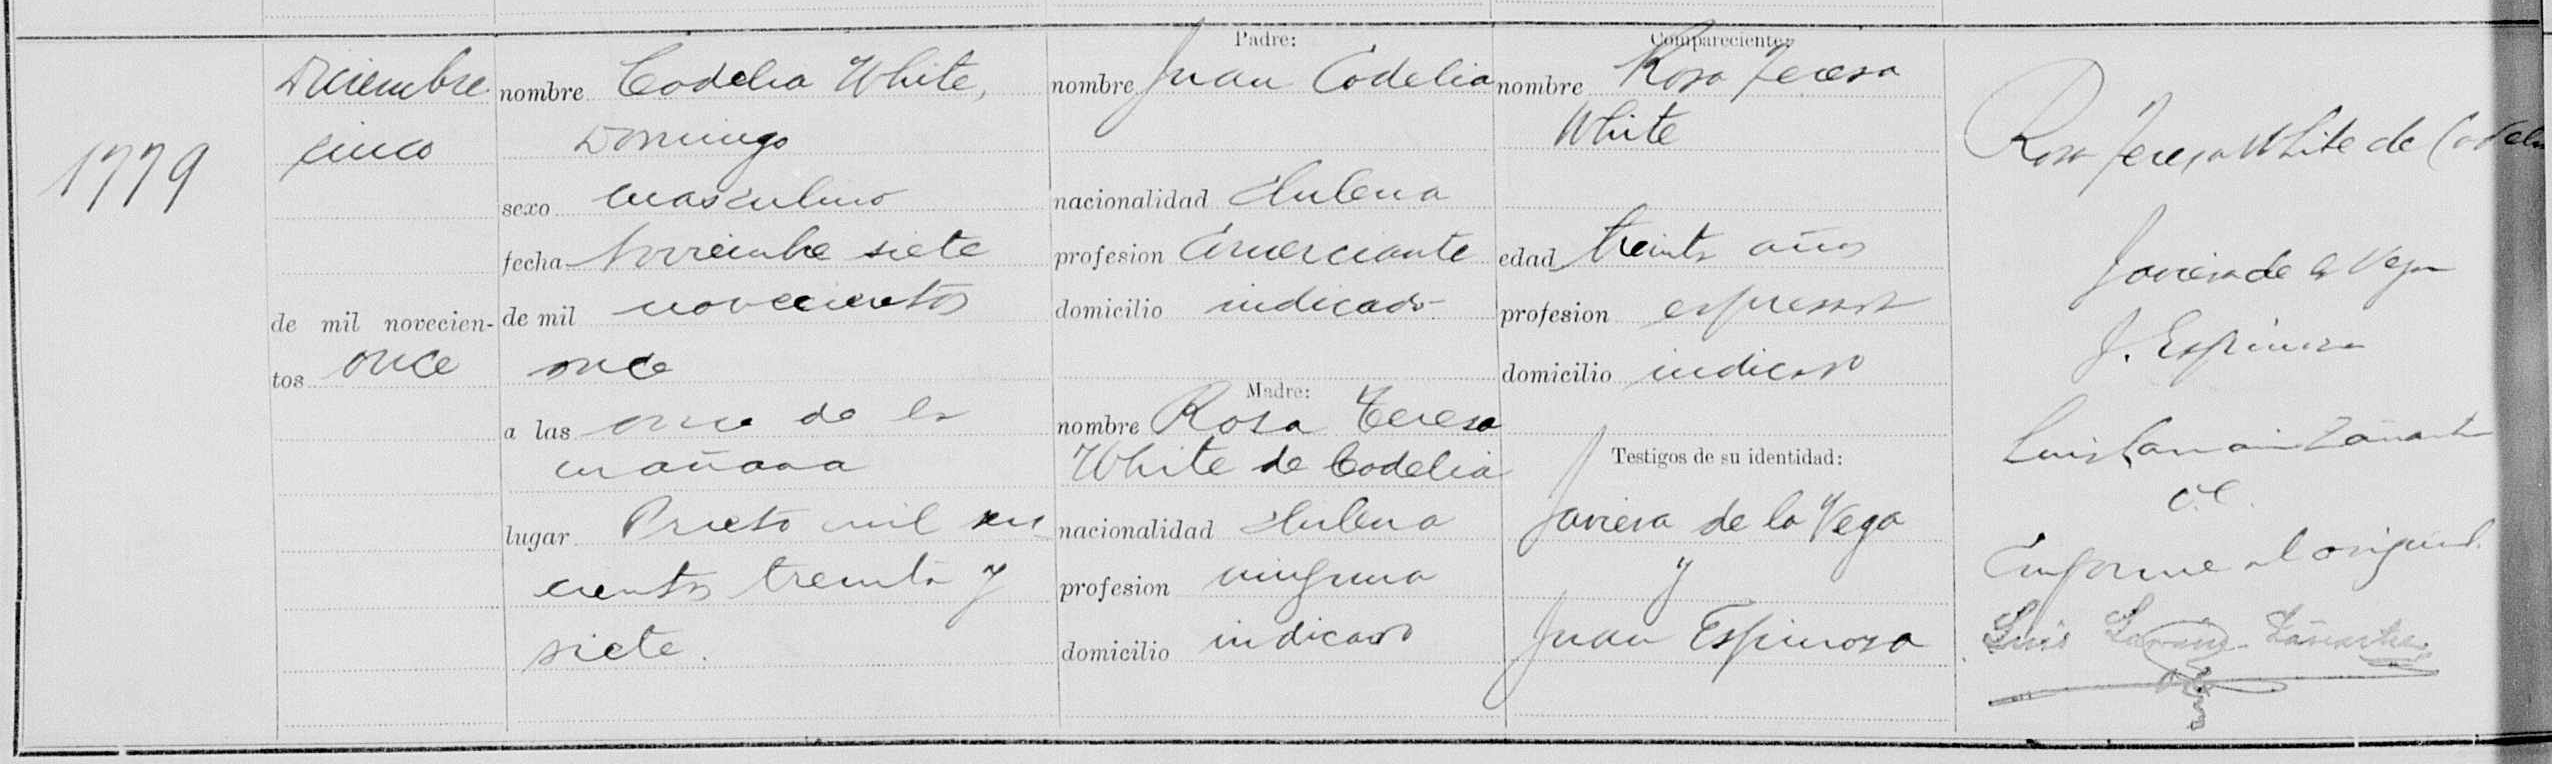 1779
Diciembre
cinco
de mil novecien-
tos once
nombre Codelia White,
Domingo
sexo masculino
fecha Noviembre siete
de mil novecientos
once
a las once de la
mañana
lugar Prieto mil
cientos treinta y
siete.
Padre:
nombre Juan Codelia
nacionalidad chilena
profesion Comerciante
domicilio indicado
Madre:
nombre Rosa Teresa
White de Codelia
nacionalidad chilena
profesion ninguna
domicilio indicado
Compareciente:
nombre Rosa Teresa
White
edad treinta años
profesion espresada
domicilio indicado
Testigos de su identidad:
Javiera de la Vega
y
Juan Espinosa
Rosa Teresa White de
Javiera de la Vega
J. Espinosa
Luis Larrain Zañartu
Conforme al original.
Luis Larrain Zañartu